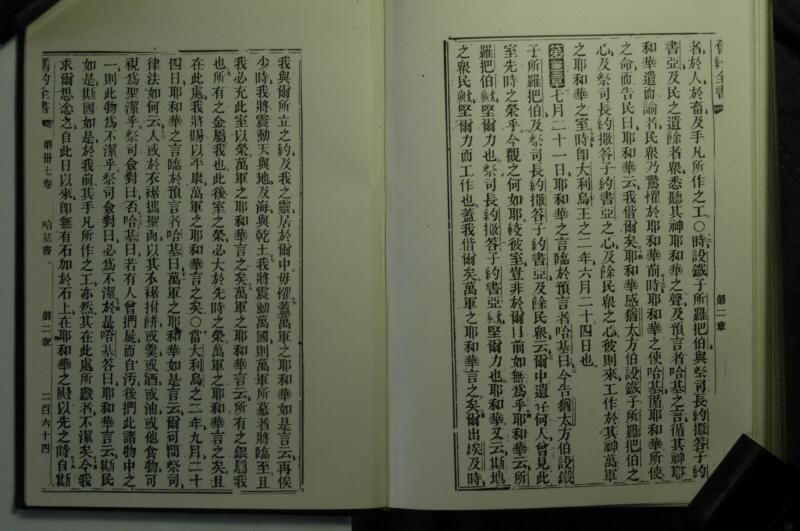 舊約全書
第二章
者於人於畜及手凡所作之工〇時設鐵子所羅把伯與祭司長約撒答子約
書亞及民之遺餘者衆悉聽其神耶和華之聲及預言者哈基之言循其神耶
和華遣而諭者民衆乃驚懼於耶和華前時耶和華之使哈基循耶和華所使
之命而告民曰耶和華云我偕爾矣耶和華感猶太方伯設鐵子所羅把伯之
心及祭司長約撒答子約書亞之心及餘民衆之心彼則來工作於其神萬軍
之耶和華之室時卽大利烏王之二年六月二十四日也
第二章七月二十一日耶和華之言臨於預言者哈基曰今告猶太方伯設鐵
子所羅把伯及祭司長約撒答子約書亞及餘民衆云爾中遺何人曾見此
室先時之榮乎今觀之何如耶較彼室豈非於爾目前如無爲乎耶和華云所
羅把伯歟堅爾力也祭司長約撒答子約書亞歟堅爾力也耶和華又云斯地
之衆民歟堅爾力而工作也蓋我偕爾矣萬軍之耶和華言之矣爾出埃及時
我與爾所立之約及我之靈居於爾中毋懼蓋萬軍之耶和華如是言云再俟
少時我將震動天與地及海與乾土我將震動萬國則萬軍所慕者將臨至且
我必充此室以榮萬軍之耶和華言之矣萬軍之耶和華言云所有之銀屬我
也所有之金屬我也此後室之榮必大於先時之榮萬軍之耶和華言之矣且
在此處我將賜以平康萬軍之耶和華言之矣〇當大利烏之二年九月二十
四日耶和華之言臨於預言者哈基曰萬軍之耶和華如是言云爾可問祭司
律法如何云人或於衣裾攜聖肉以其衣裾捫餅或羹或酒或油或他食物可
視爲聖潔乎祭司僉對曰否哈基曰若有人曾捫屍而自汚後捫此諸物中之
一則此物爲不潔乎祭司僉對曰必爲不潔於是哈基答曰耶和華言云斯民
如是斯國如是於我前其手凡所作之工亦然其在此處所獻者不潔矣今我
求爾思念之自此日以來卽無有石加於石上在耶和華之殿以先之時自斯
舊約全書
第卅七卷
哈基書
第二章
二百六十四